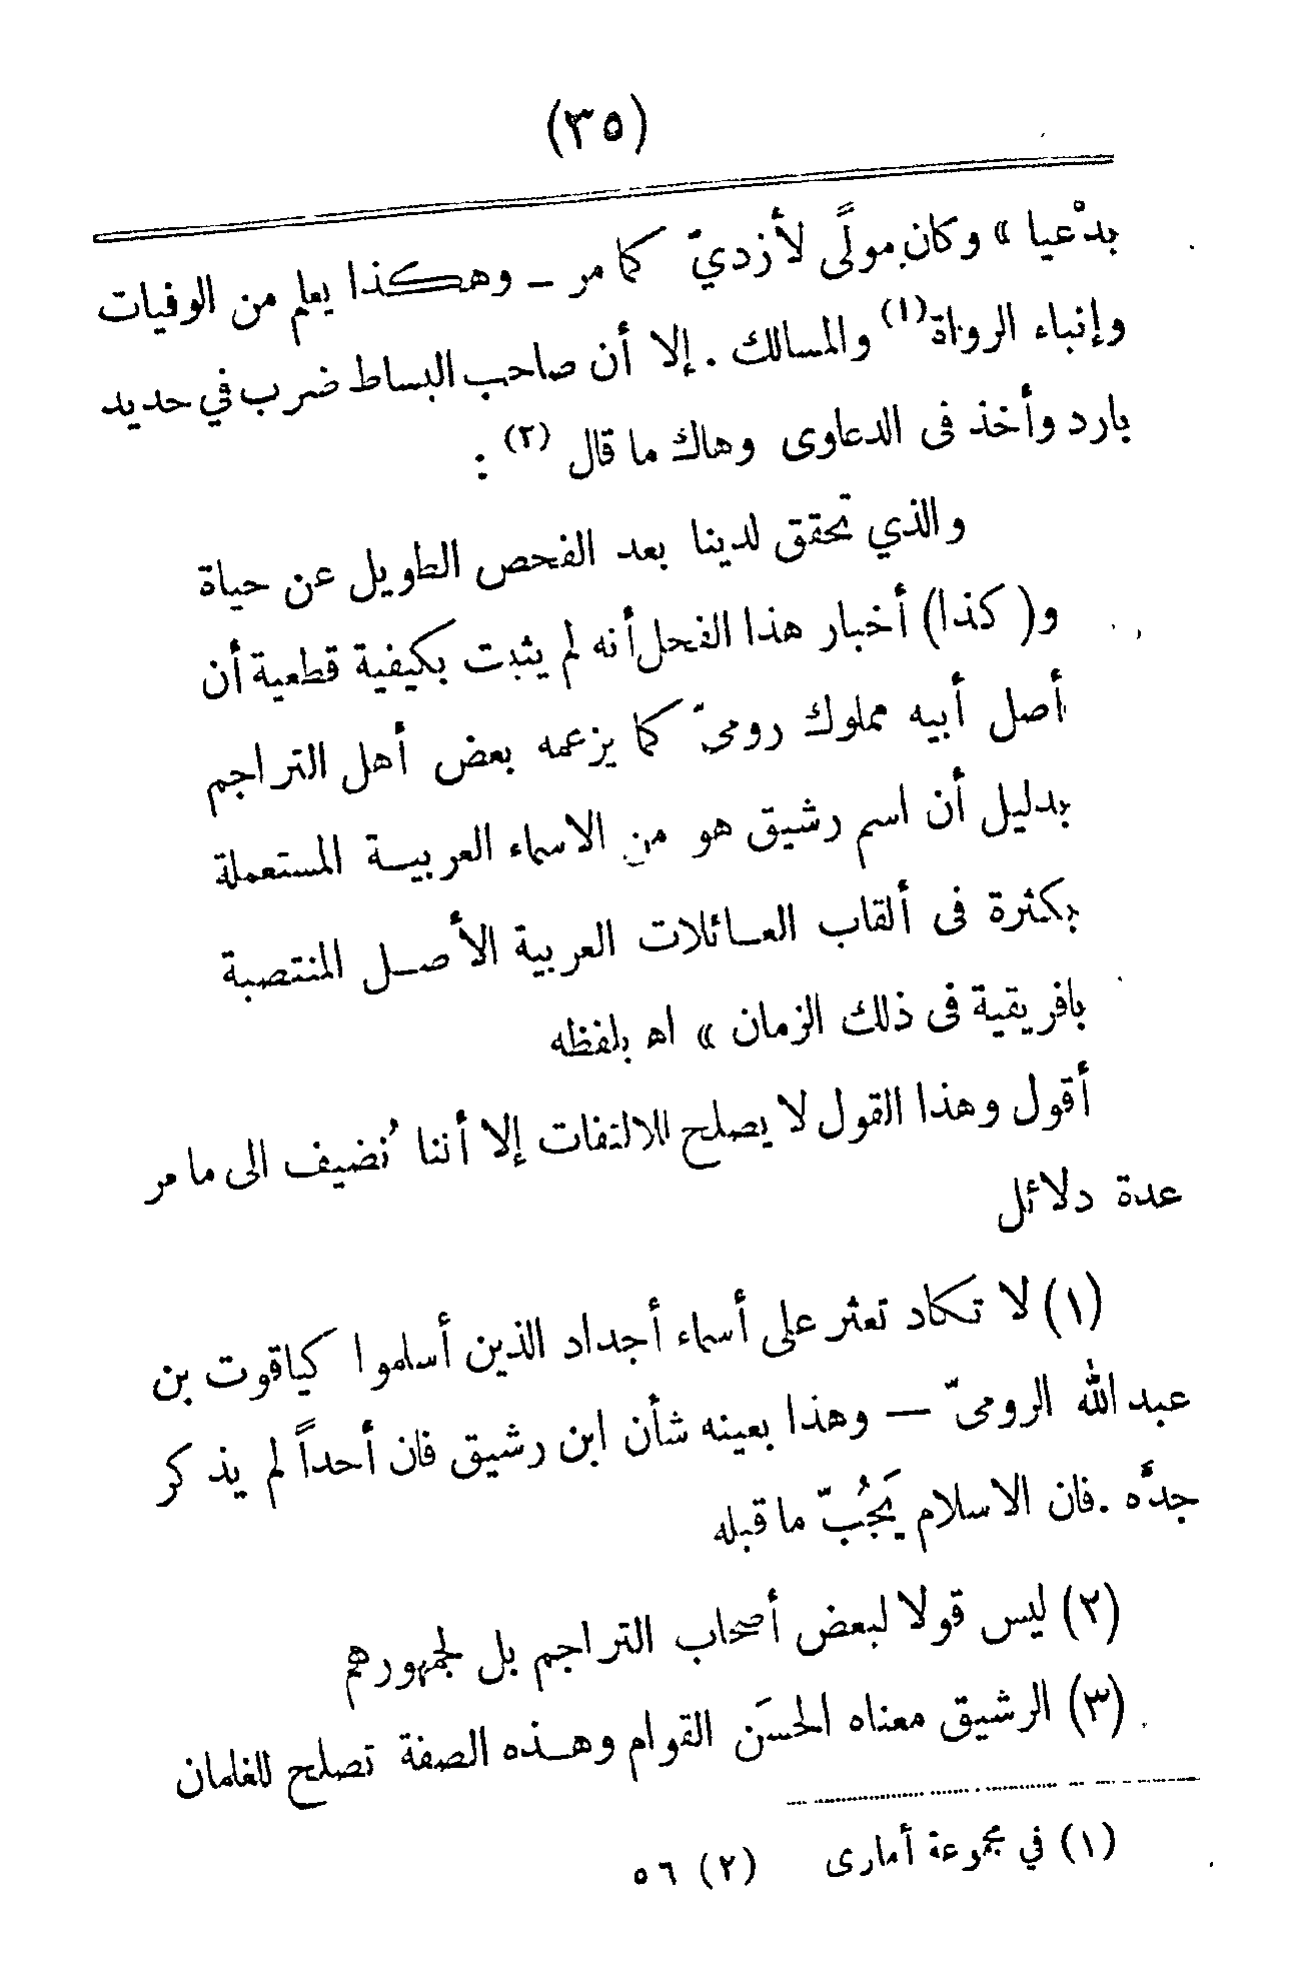 (٣٥)
بدْعيا » وكان مولًى لأزديّ كما مر ــ وهكذا يعلم من الوفيات
وإنباء الرواة(١) والمسالك . إلا أن صاحب البساط ضرب في حديد
بارد وأخذ فى الدعاوى وهاك ما قال (٢) :
والذي تحقق لدينا بعد الفحص الطويل عن حياة
و(كذا) أخبار هذا الفحل أنه لم يثبت بكيفية قطعية أن
أصل أبيه مملوك رومىّ كما يزعمه بعض أهل التراجم
بدليل أن اسم رشيق هو من الاسماء العربيــة المستعملة
بكثرة فى ألقاب العــائلات العربية الأصــل المنتصبة
بافريقية فى ذلك الزمان » اه بلفظه
أقول وهذا القول لا يصلح للالتفات إلا أننا نُضيف الى ما مر
عدة دلائل
(١) لا تكاد تعثر على أسماء أجداد الذين أسلموا كياقوت بن
عبد الله الرومىّ — وهذا بعينه شأن ابن رشيق فان أحداً لم يذكر
جدَّه . فان الاسلام يَجُبّ ما قبله
(٢) ليس قولا لبعض أصحاب التراجم بل لجمهورهم
(٣) الرشيق معناه الحسَن القوام وهــذه الصفة تصلح للغلمان
(١) في مجموعة أمارى (٢) ٥٦